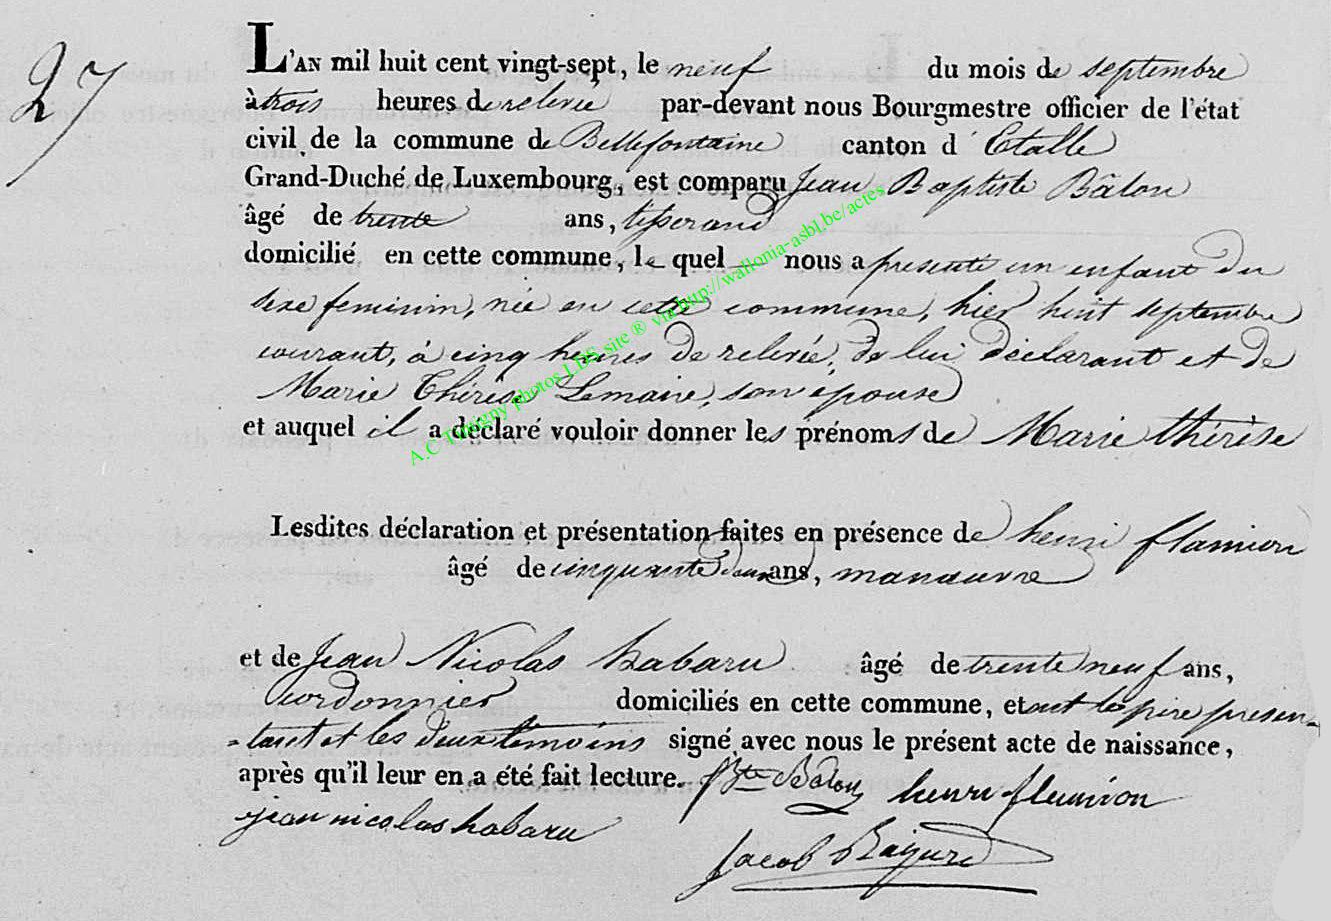 27
L'AN mil huit cent vingt-sept, le neuf du mois de septembre
à trois heures de relevée par-devant nous Bourgmestre officier de l'état
civil de la commune de Bellefontaine canton d'Etalle
Grand-Duché de Luxembourg, est comparu Jean Baptiste Bâlon
âgé de trente ans, tisserand
domicilié en cette commune, le quel nous a presenté un enfant du
sexe feminin, née en cette commune, hier huit septembre
courant, à cinq heures de relevée, de lui déclarant et de
Marie Thérèse Lemaire, son épouse
et auquel il a déclaré vouloir donner les prénoms de Marie thérèse
Lesdites déclaration et présentation faites en présence de henri flamion
âgé de cinquante deux ans, manœuvre
et de Jean Nicolas habaru âgé de trente neuf ans,
cordonnier domiciliés en cette commune, et ont le père présen-
-tant et les deux témoins signé avec nous le présent acte de naissance,
après qu'il leur en a été fait lecture. Bte Balon henri flamion
jean nicolas habaru
Jacob
A.C Tintigny photos LDS site ® via http://wallonia-asbl.be/actes